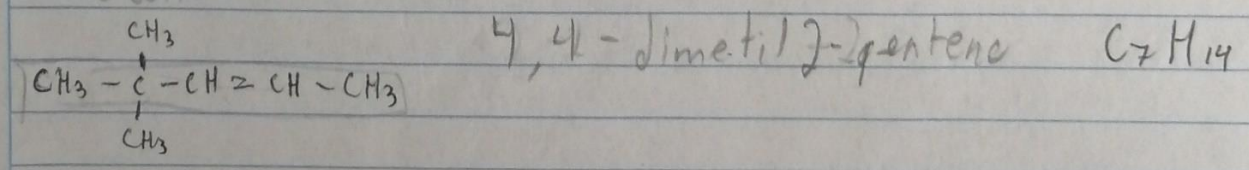 CH3
CH3 - C - CH = CH - CH3
CH3
4,4-dimetil 2-penteno
C7H14